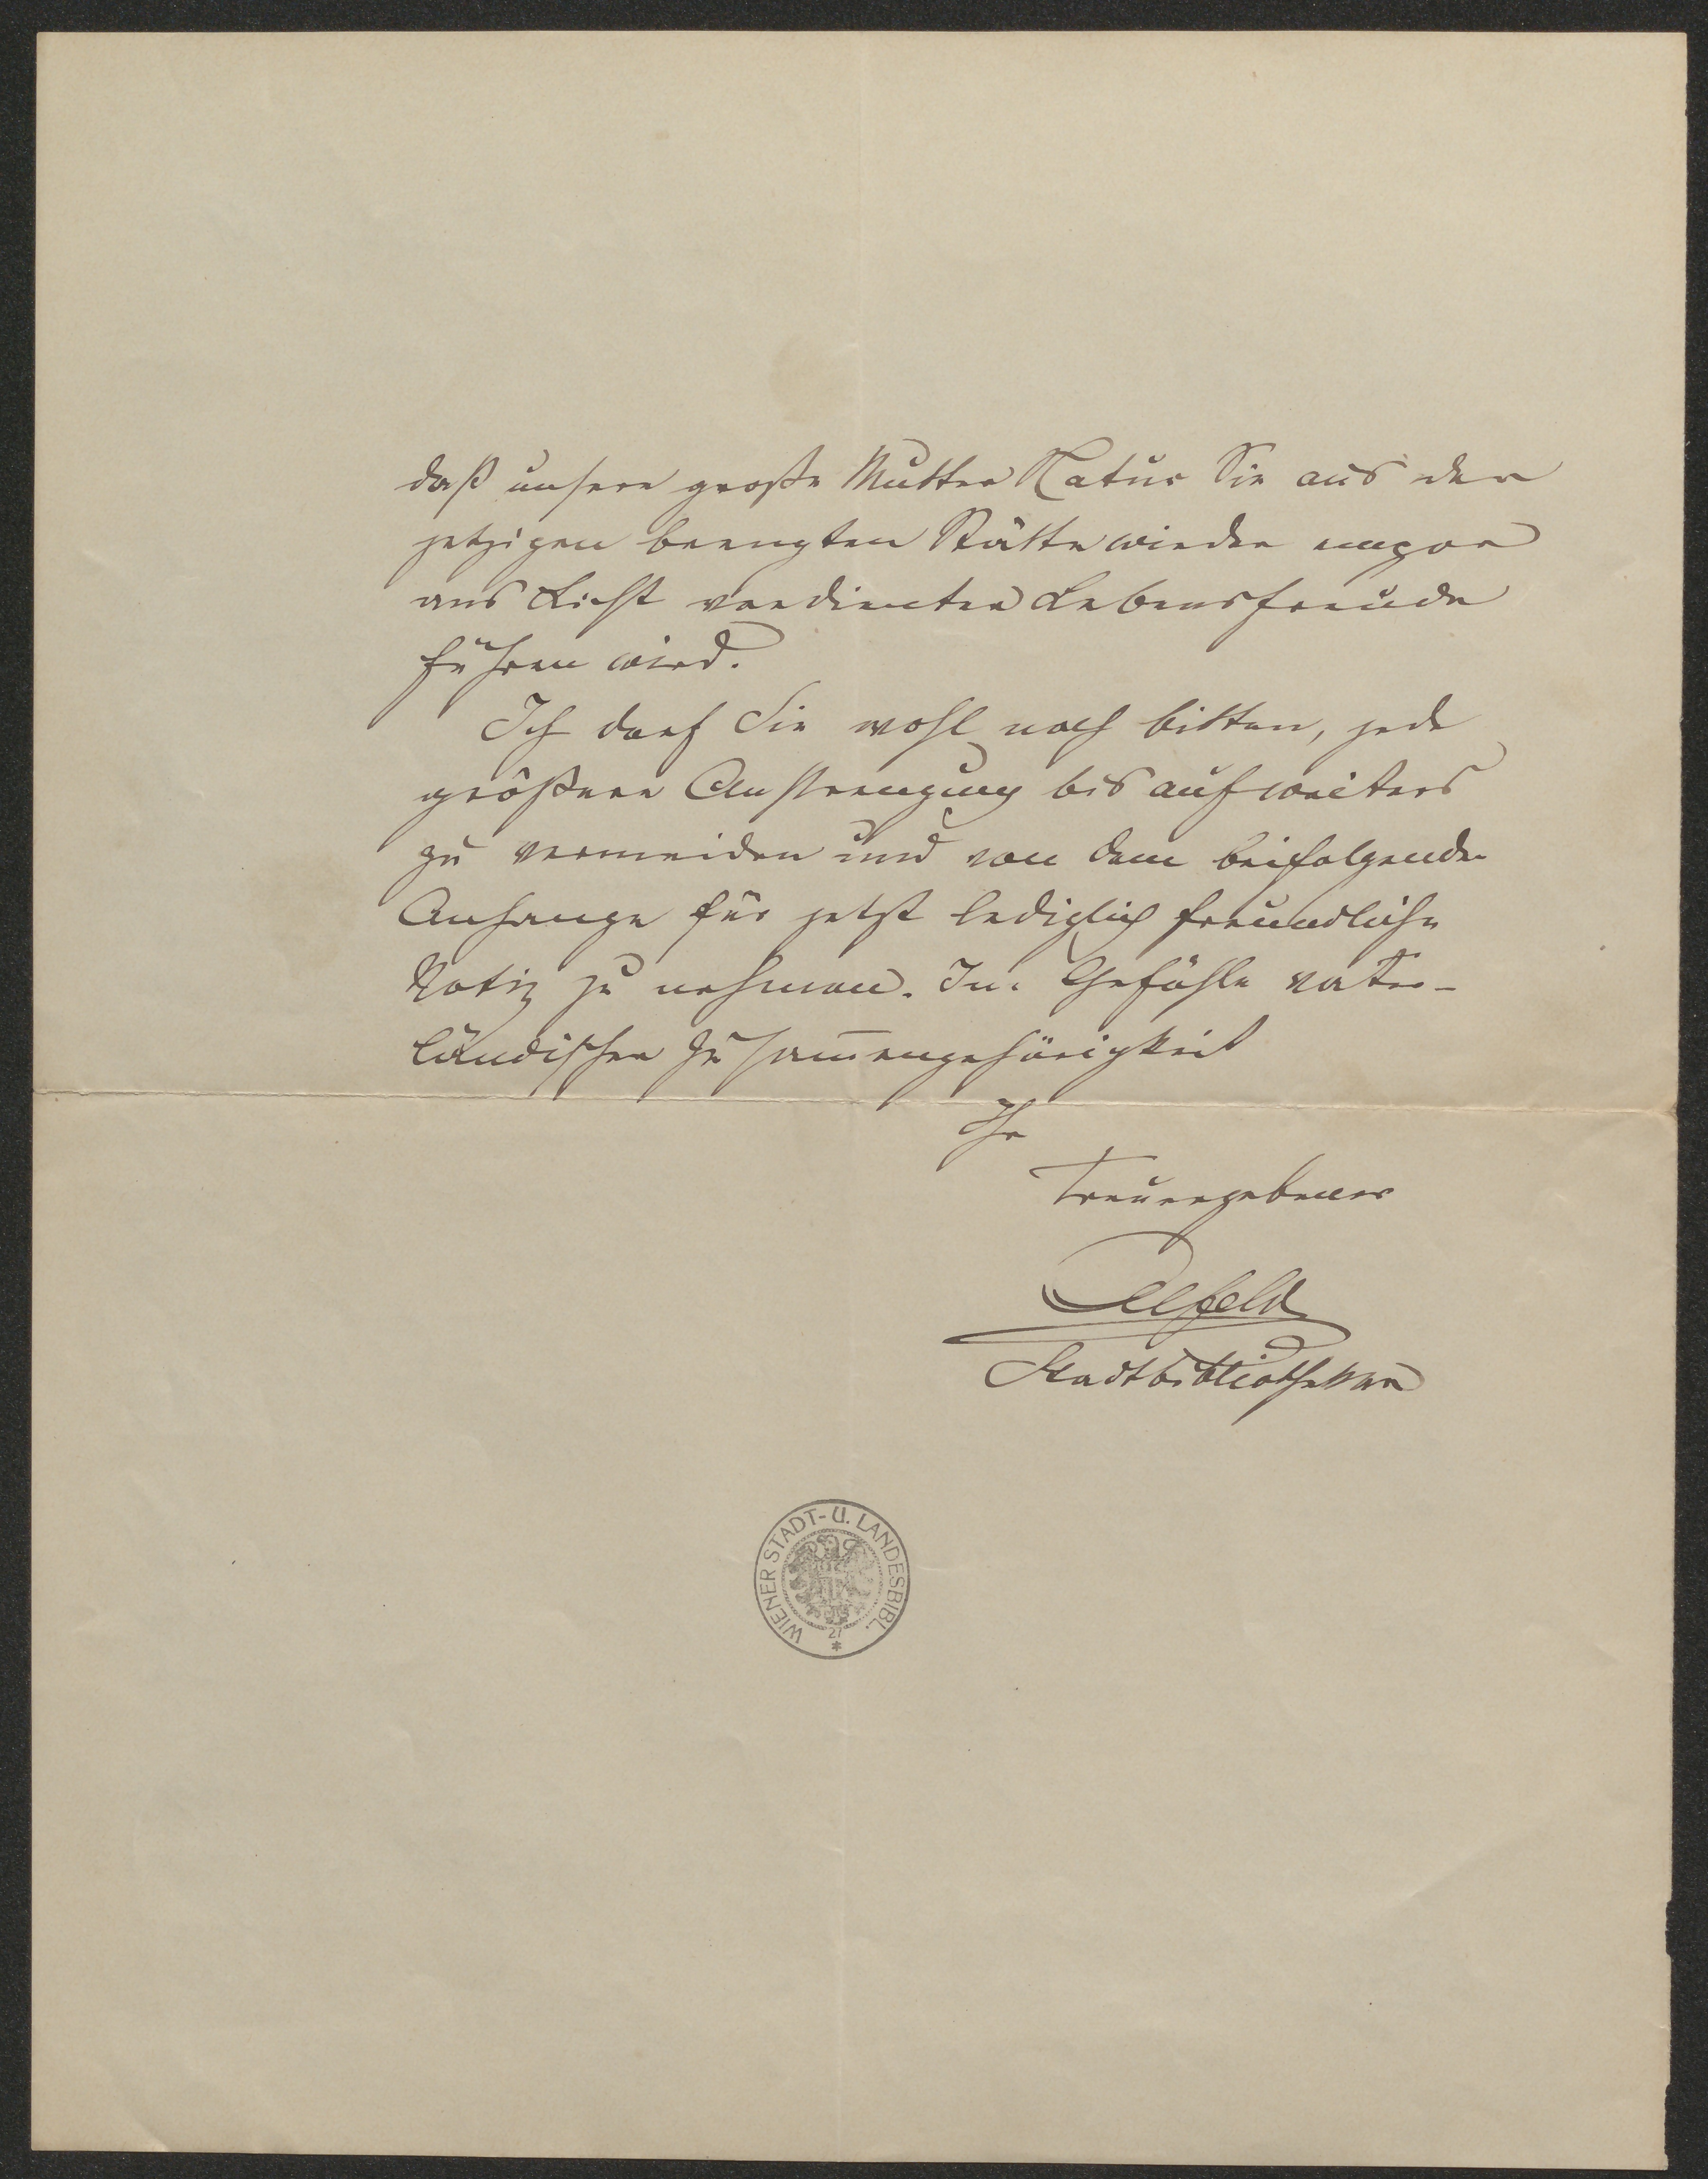 daß unsere große Mutter Natur Sie aus der
jetzigen beengten Stätte wieder empor
ans Licht verdienter Lebensfreude
führen wird.
Ich darf Sie wohl noch bitten, jede
größere Anstrengung bis auf weiters
zu vermeiden und von dem beifolgenden
Anhange für jetzt lediglich freundliche
Notiz zu nehmen. Im Gefühle vater-
ländischer Zusam̄engehörigkeit
Ihr
Treuergebener
Stadtbibliothekar
WIENER STADT- U. LANDESBIBL.
27